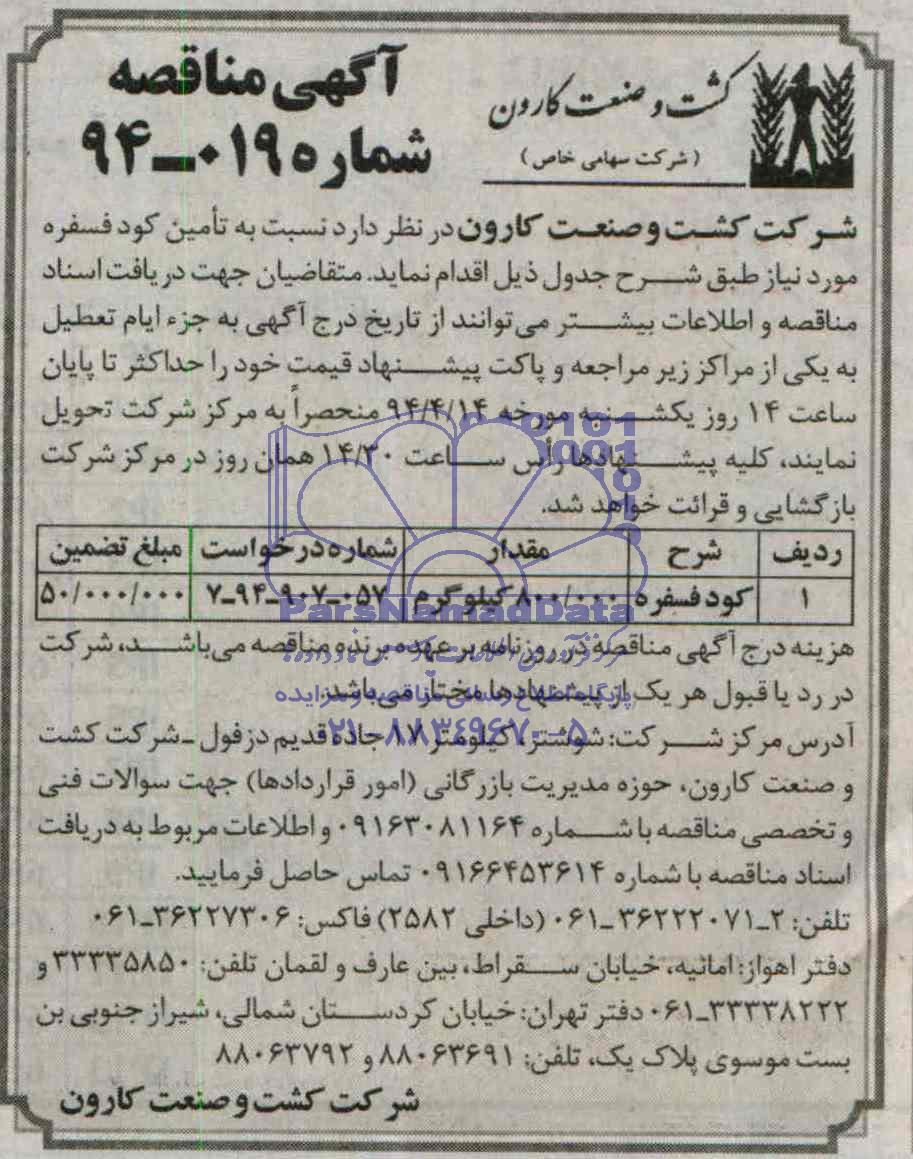 کشت و صنعت کارون
(شرکت سهامی خاص)
آگهی مناقصه
شماره ۰۱۹-۹۴
شرکت کشت و صنعت کارون در نظر دارد نسبت به تأمین کود فسفره
مورد نیاز طبق شرح جدول ذیل اقدام نماید. متقاضیان جهت دریافت اسناد
مناقصه و اطلاعات بیشتر می‌توانند از تاریخ درج آگهی به جزء ایام تعطیل
به یکی از مراکز زیر مراجعه و پاکت پیشنهاد قیمت خود را حداکثر تا پایان
ساعت ۱۴ روز یکشنبه مورخه ۹۴/۴/۱۴ منحصراً به مرکز شرکت تحویل
نمایند، کلیه پیشنهادها رأس ساعت ۱۴/۳۰ همان روز در مرکز شرکت
بازگشایی و قرائت خواهد شد.
ردیف شرح مقدار شماره درخواست مبلغ تضمین
۱ کود فسفره ۸۰۰/۰۰۰ کیلوگرم ۰۵۷-۹۰۷-۹۴-۷ ۵۰/۰۰۰/۰۰۰
ParsNamadData
هزینه درج آگهی مناقصه در روزنامه بر عهده برنده مناقصه می‌باشد، شرکت
در رد یا قبول هر یک از پیشنهادها مختار می‌باشد.
پایگاه اطلاع رسانی مناقصه و مزایده
۰۲۱-۸۸۳۴۹۶۷۰-۵
آدرس مرکز شرکت: شوشتر، کیلومتر ۸۷ جاده قدیم دزفول - شرکت کشت
و صنعت کارون، حوزه مدیریت بازرگانی (امور قراردادها) جهت سوالات فنی
و تخصصی مناقصه با شماره ۰۹۱۶۳۰۸۱۱۶۴ و اطلاعات مربوط به دریافت
اسناد مناقصه با شماره ۰۹۱۶۶۴۵۳۶۱۴ تماس حاصل فرمایید.
تلفن: ۲-۳۶۲۲۲۰۷۱-۰۶۱ (داخلی ۲۵۸۲) فاکس: ۳۶۲۲۷۳۰۶-۰۶۱
دفتر اهواز: امانیه، خیابان سقراط، بین عارف و لقمان تلفن: ۳۳۳۳۵۸۵۰ و
۳۳۳۳۸۲۲۲-۰۶۱ دفتر تهران: خیابان کردستان شمالی، شیراز جنوبی بن
بست موسوی پلاک یک، تلفن: ۸۸۰۶۳۶۹۱ و ۸۸۰۶۳۷۹۲
شرکت کشت و صنعت کارون